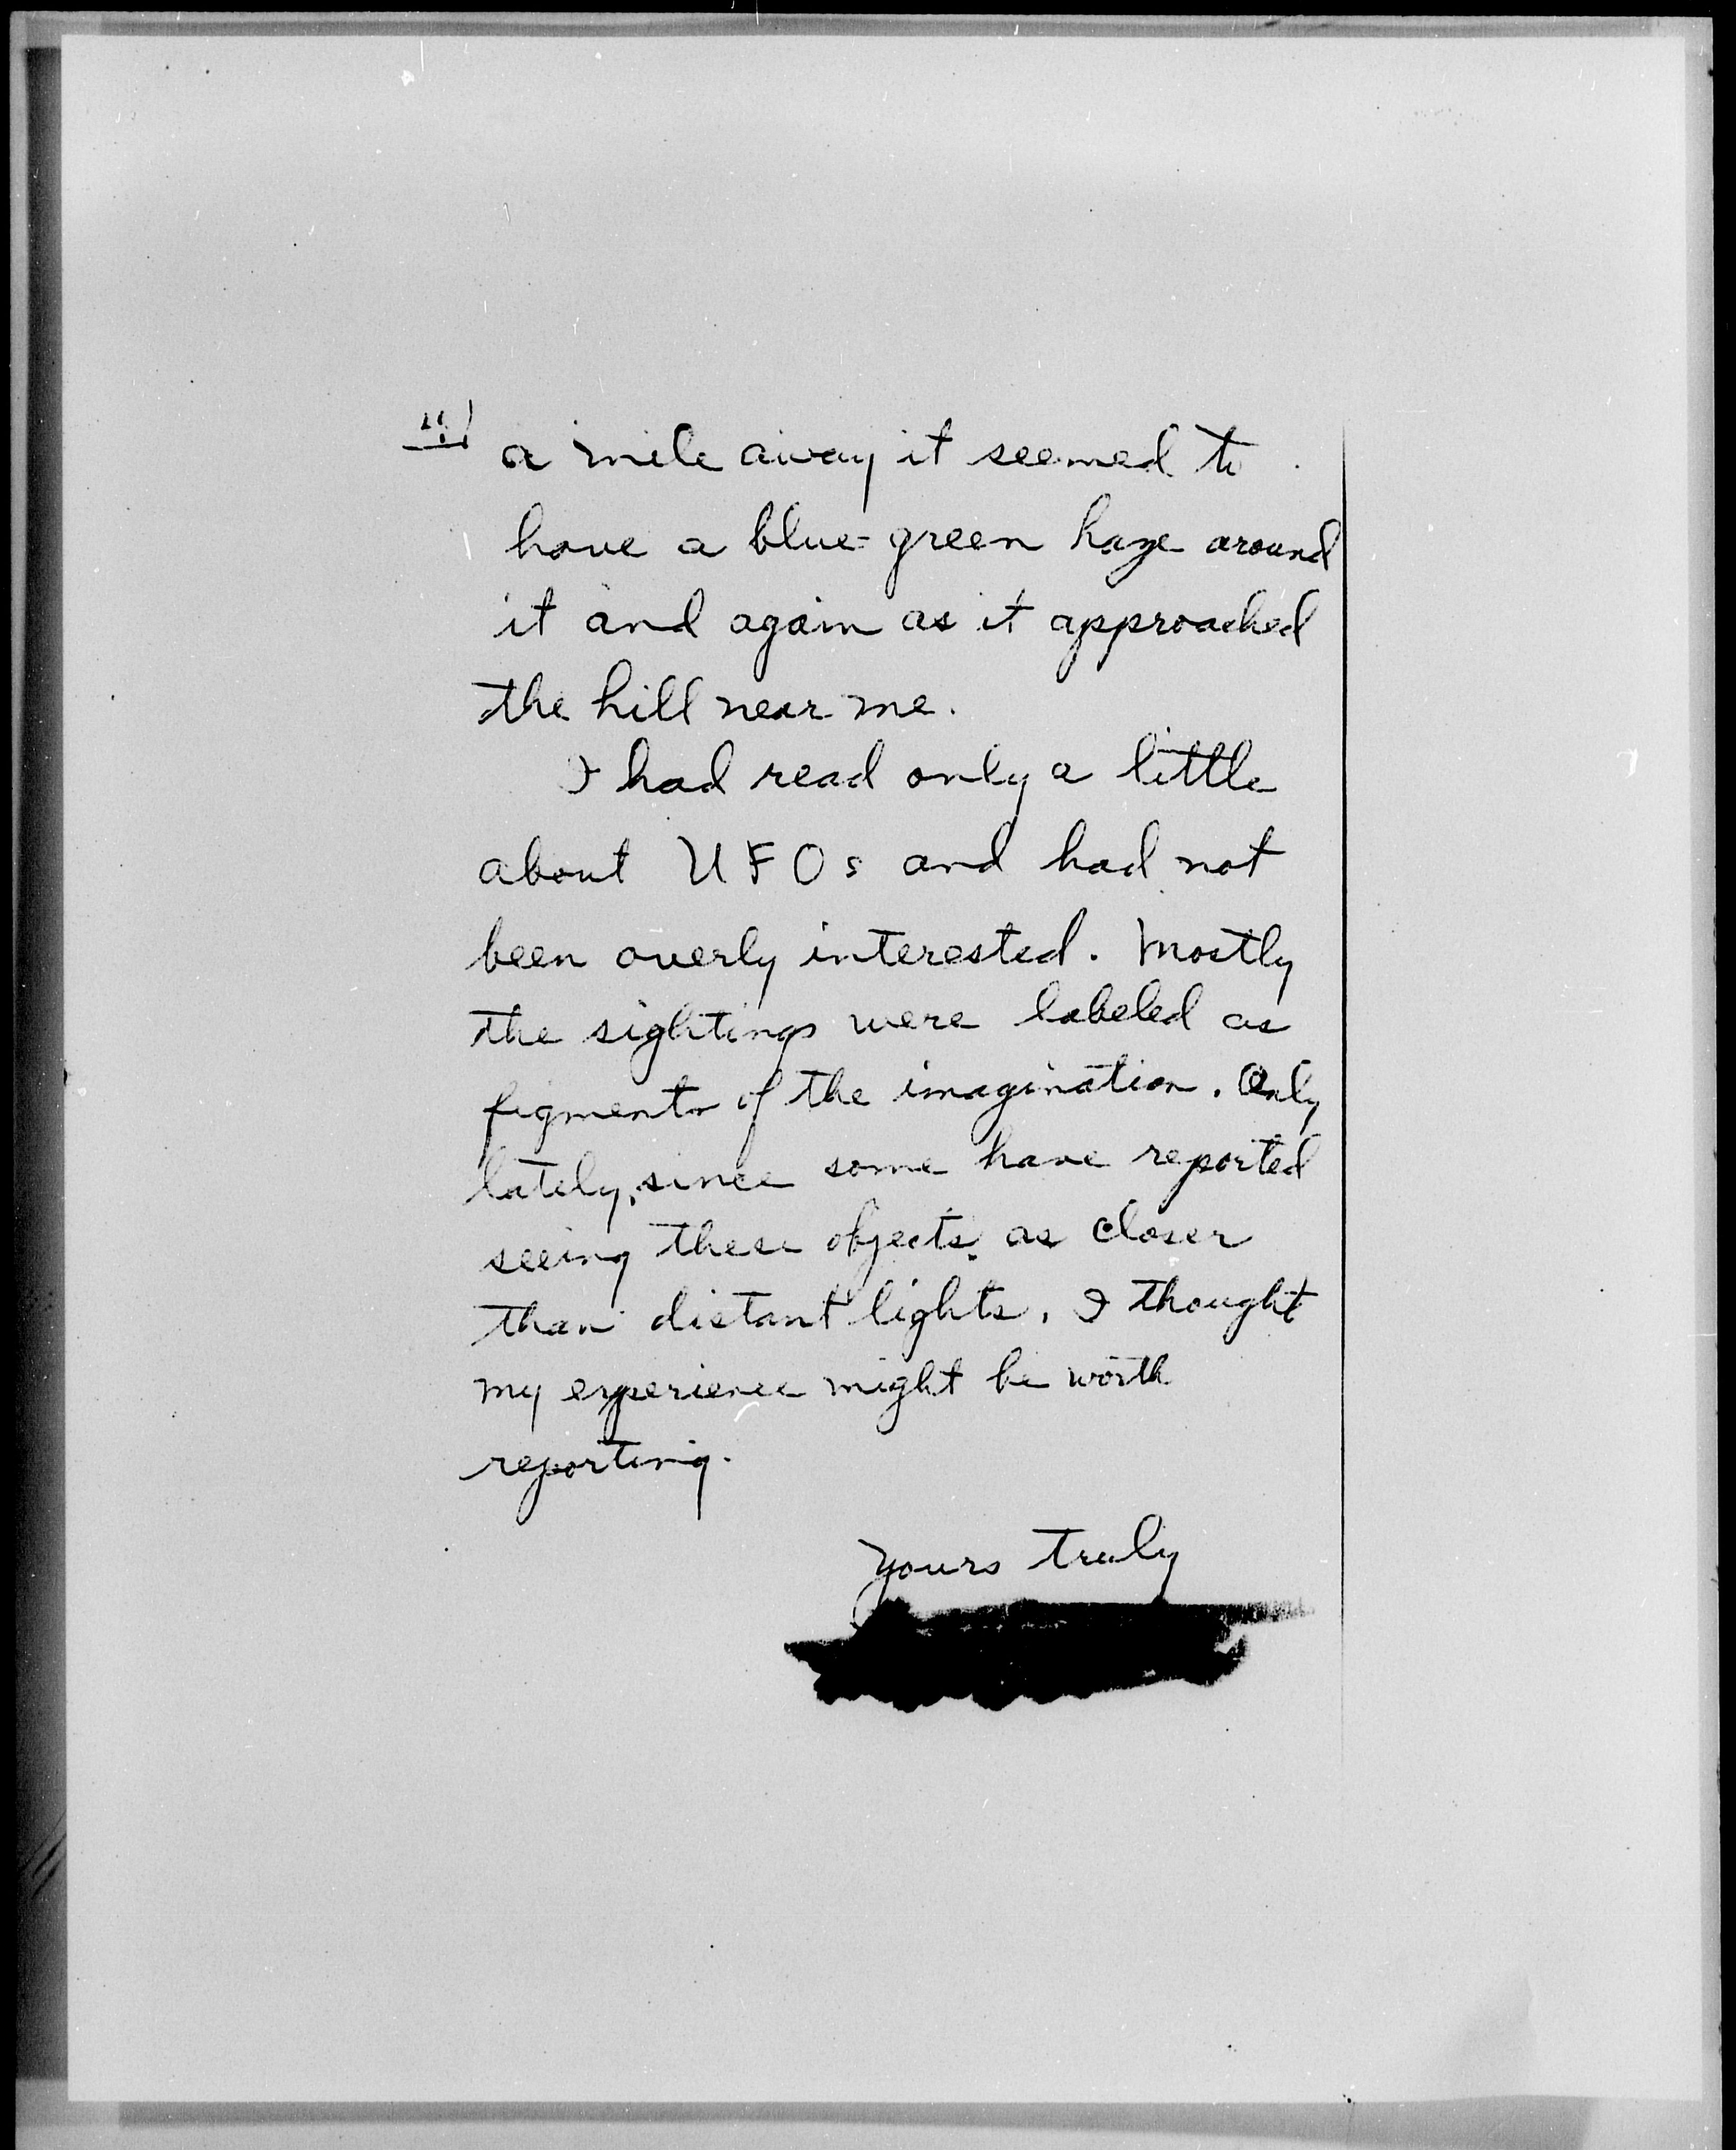 a mile away it seemed to
have a blue-green haze around
it and again as it approached
the hill near me.
I had read only a little
about UFOs and had not
been overly interested. Mostly
the sightings were labeled as
figments of the imagination. Only
lately, since some have reported
seeing these objects as closer
than distant lights, I thought
my experience might be worth
reporting.
Yours truly